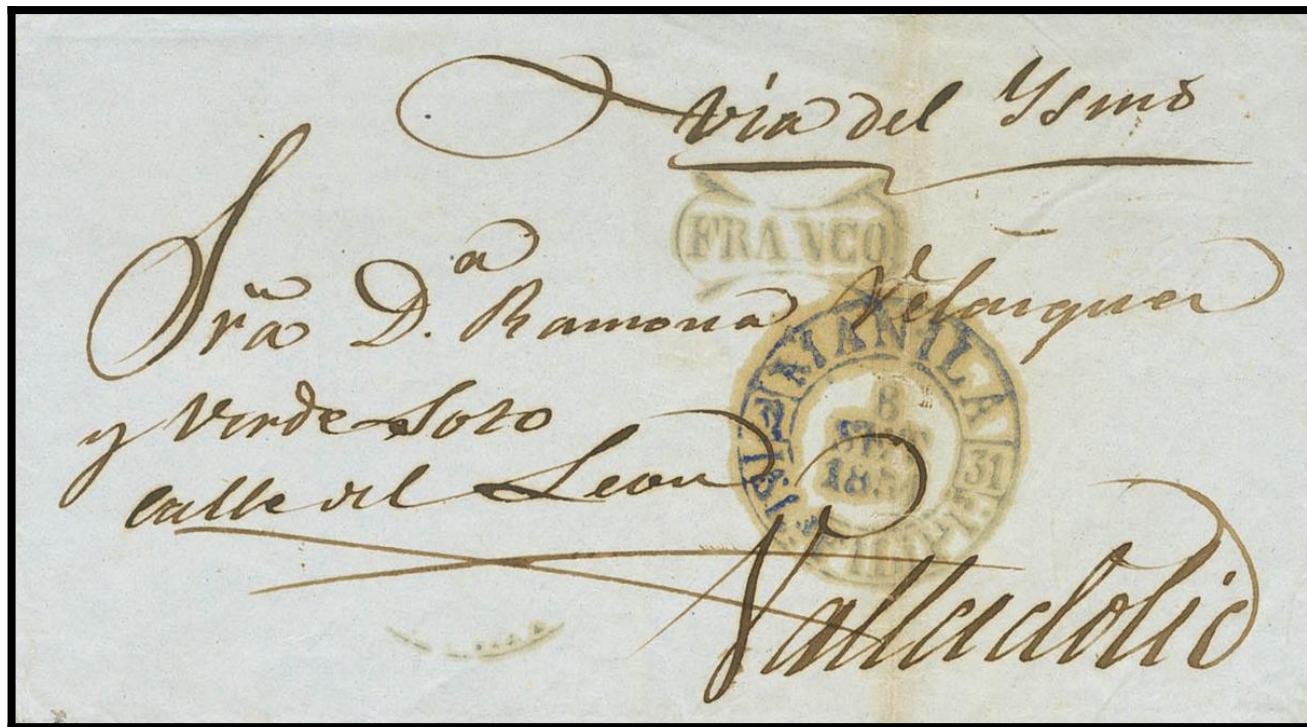 Via del Ysmo
FRANCO
Sra. D.a Ramona Velazquez
y Verde Soto
calle del Leon
MANILA
8
SET
31
ISL FILIPI
Valladolid